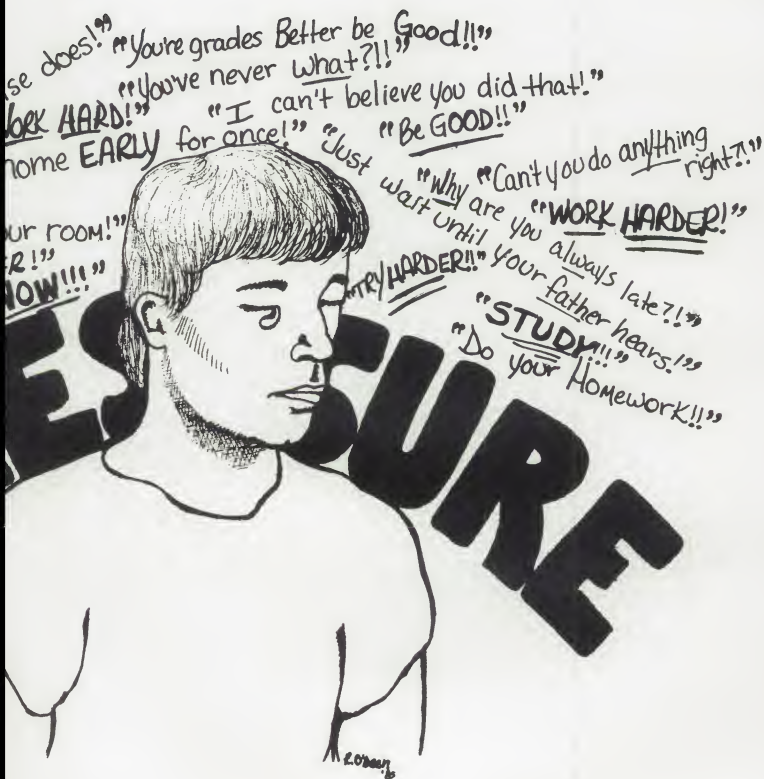 se does!"
"Youre grades Better be Good!!"
"You've never what?!!"
WORK HARD!"
"I can't believe you did that!"
home EARLY for once!"
"Be GOOD!!"
"Just wait until your father hears!"
"Why are you always late?!"
"Can't you do anything right?!"
"WORK HARDER!"
ur room!"
R!"
NOW!!!"
"TRY HARDER!!"
"STUDY!!!"
"Do your Homework!!"
ESSURE